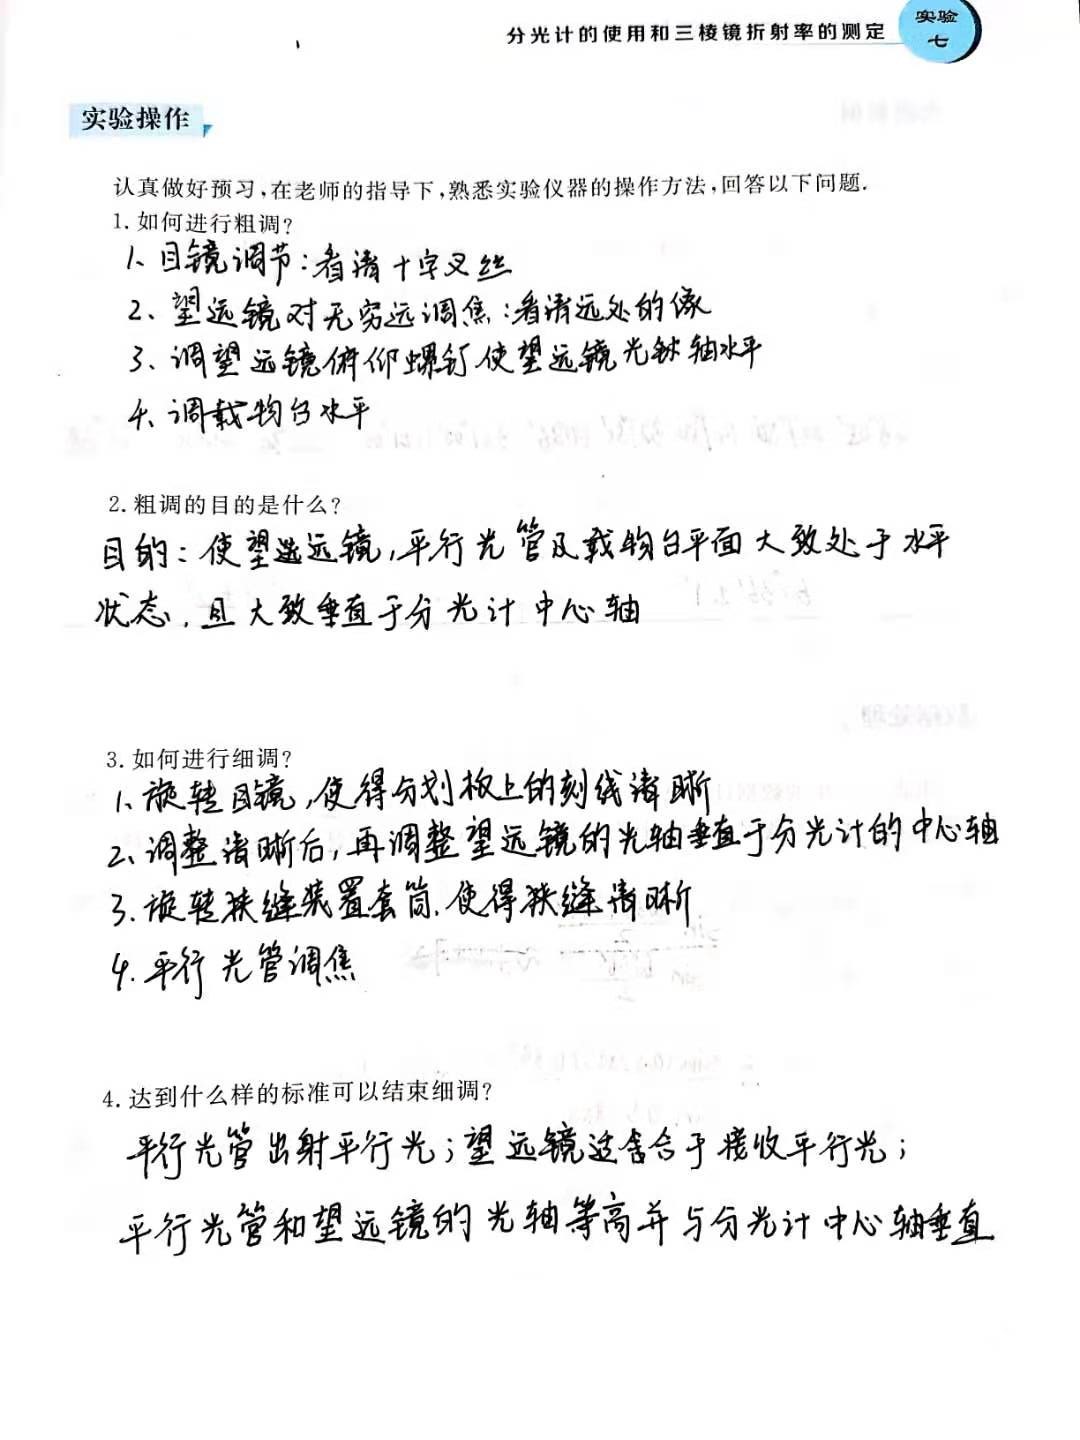 分光计的使用和三棱镜折射率的测定
实验
七
实验操作
认真做好预习,在老师的指导下,熟悉实验仪器的操作方法,回答以下问题.
1. 如何进行粗调?
1、目镜调节:看清十字叉丝
2、望远镜对无穷远调焦:看清远处的像
3、调望远镜俯仰螺钉使望远镜光轴水平
4、调载物台水平
2. 粗调的目的是什么?
目的:使望远镜,平行光管及载物台平面大致处于水平
状态,且大致垂直于分光计中心轴
3. 如何进行细调?
1、旋转目镜,使得分划板上的刻线清晰
2、调整清晰后,再调整望远镜的光轴垂直于分光计的中心轴
3、旋转狭缝装置套筒,使得狭缝清晰
4.平行光管调焦
4. 达到什么样的标准可以结束细调?
平行光管出射平行光;望远镜适合于接收平行光;
平行光管和望远镜的光轴等高并与分光计中心轴垂直